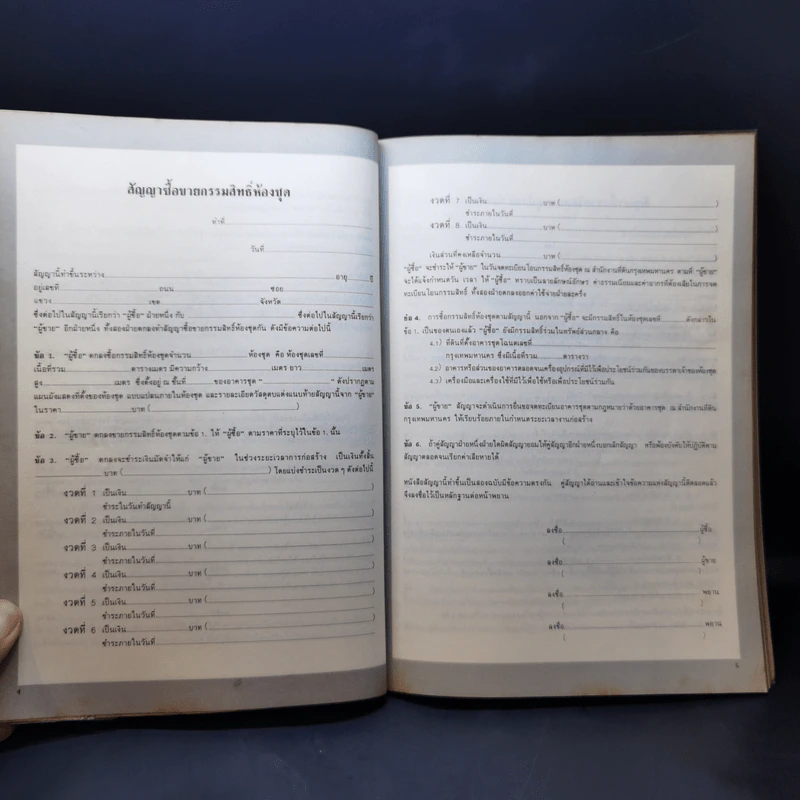 สัญญาซื้อขายกรรมสิทธิ์ห้องชุด
ทำที่
วันที่
สัญญานี้ทำขึ้นระหว่าง อายุ ปี
อยู่เลขที่ ถนน ซอย
แขวง เขต จังหวัด
ซึ่งต่อไปในสัญญานี้เรียกว่า "ผู้ซื้อ" ฝ่ายหนึ่ง กับ ซึ่งต่อไปในสัญญานี้เรียกว่า
"ผู้ขาย" อีกฝ่ายหนึ่ง ทั้งสองฝ่ายตกลงทำสัญญาซื้อขายกรรมสิทธิ์ห้องชุดกัน ดังมีข้อความต่อไปนี้
ข้อ 1. "ผู้ซื้อ" ตกลงซื้อกรรมสิทธิ์ห้องชุดจำนวน ห้องชุด คือ ห้องชุดเลขที่
เนื้อที่รวม ตารางเมตร มีความกว้าง เมตร ยาว เมตร
สูง เมตร ซึ่งตั้งอยู่ ณ ชั้นที่ ของอาคารชุด " " ดังปรากฏตาม
แผนผังแสดงที่ตั้งของห้องชุด แบบแปลนภายในห้องชุด และรายละเอียดวัสดุตบแต่งแนบท้ายสัญญานี้จาก "ผู้ขาย"
ในราคา บาท ( )
ข้อ 2. "ผู้ขาย" ตกลงขายกรรมสิทธิ์ห้องชุดตามข้อ 1. ให้ "ผู้ซื้อ" ตามราคาที่ระบุไว้ในข้อ 1. นั้น
ข้อ 3. "ผู้ซื้อ" ตกลงจะชำระเงินมัดจำให้แก่ "ผู้ขาย" ในช่วงระยะเวลาการก่อสร้าง เป็นเงินทั้งสิ้น
บาท ( ) โดยแบ่งชำระเป็นงวด ๆ ดังต่อไปนี้
งวดที่ 1 เป็นเงิน บาท ( )
ชำระในวันทำสัญญานี้
งวดที่ 2 เป็นเงิน บาท ( )
ชำระภายในวันที่
งวดที่ 3 เป็นเงิน บาท ( )
ชำระภายในวันที่
งวดที่ 4 เป็นเงิน บาท ( )
ชำระภายในวันที่
งวดที่ 5 เป็นเงิน บาท ( )
ชำระภายในวันที่
งวดที่ 6 เป็นเงิน บาท ( )
ชำระภายในวันที่
4
งวดที่ 7 เป็นเงิน บาท ( )
ชำระภายในวันที่
งวดที่ 8 เป็นเงิน บาท ( )
ชำระภายในวันที่
เงินส่วนที่คงเหลือจำนวน บาท ( )
"ผู้ซื้อ" จะชำระให้ "ผู้ขาย" ในวันจดทะเบียนโอนกรรมสิทธิ์ห้องชุด ณ สำนักงานที่ดินกรุงเทพมหานคร ตามที่ "ผู้ขาย"
จะได้แจ้งกำหนดวัน เวลา ให้ "ผู้ซื้อ" ทราบเป็นลายลักษณ์อักษร ค่าธรรมเนียมและค่าอากรที่ต้องเสียในการจด
ทะเบียนโอนกรรมสิทธิ์ ทั้งสองฝ่ายตกลงออกค่าใช้จ่ายฝ่ายละครึ่ง
ข้อ 4. การซื้อกรรมสิทธิ์ห้องชุดตามสัญญานี้ นอกจาก "ผู้ซื้อ" จะมีกรรมสิทธิ์ในห้องชุดเลขที่ ดังกล่าวใน
ข้อ 1. เป็นของตนเองแล้ว "ผู้ซื้อ" ยังมีกรรมสิทธิ์ร่วมในทรัพย์ส่วนกลาง คือ
4.1) ที่ดินที่ตั้งอาคารชุดโฉนดเลขที่
กรุงเทพมหานคร ซึ่งมีเนื้อที่รวม ตารางวา
4.2) อาคารหรือส่วนของอาคารตลอดจนเครื่องอุปกรณ์ที่มีไว้เพื่อประโยชน์ร่วมกันของบรรดาเจ้าของห้องชุด
4.3) เครื่องมือและเครื่องใช้ที่มีไว้เพื่อใช้หรือเพื่อประโยชน์ร่วมกัน
ข้อ 5. "ผู้ขาย" สัญญาจะดำเนินการยื่นขอจดทะเบียนอาคารชุดตามกฎหมายว่าด้วยอาคารชุด ณ สำนักงานที่ดิน
กรุงเทพมหานคร ให้เรียบร้อยภายในกำหนดระยะเวลางานก่อสร้าง
ข้อ 6. ถ้าคู่สัญญาฝ่ายหนึ่งฝ่ายใดผิดสัญญายอมให้คู่สัญญาอีกฝ่ายหนึ่งบอกเลิกสัญญา หรือฟ้องบังคับให้ปฏิบัติตาม
สัญญาตลอดจนเรียกค่าเสียหายได้
หนังสือสัญญานี้ทำขึ้นเป็นสองฉบับมีข้อความตรงกัน คู่สัญญาได้อ่านและเข้าใจข้อความแห่งสัญญานี้ดีตลอดแล้ว
จึงลงชื่อไว้เป็นหลักฐานต่อหน้าพยาน
ลงชื่อ ผู้ซื้อ
( )
ลงชื่อ ผู้ขาย
( )
ลงชื่อ พยาน
( )
ลงชื่อ พยาน
( )
5